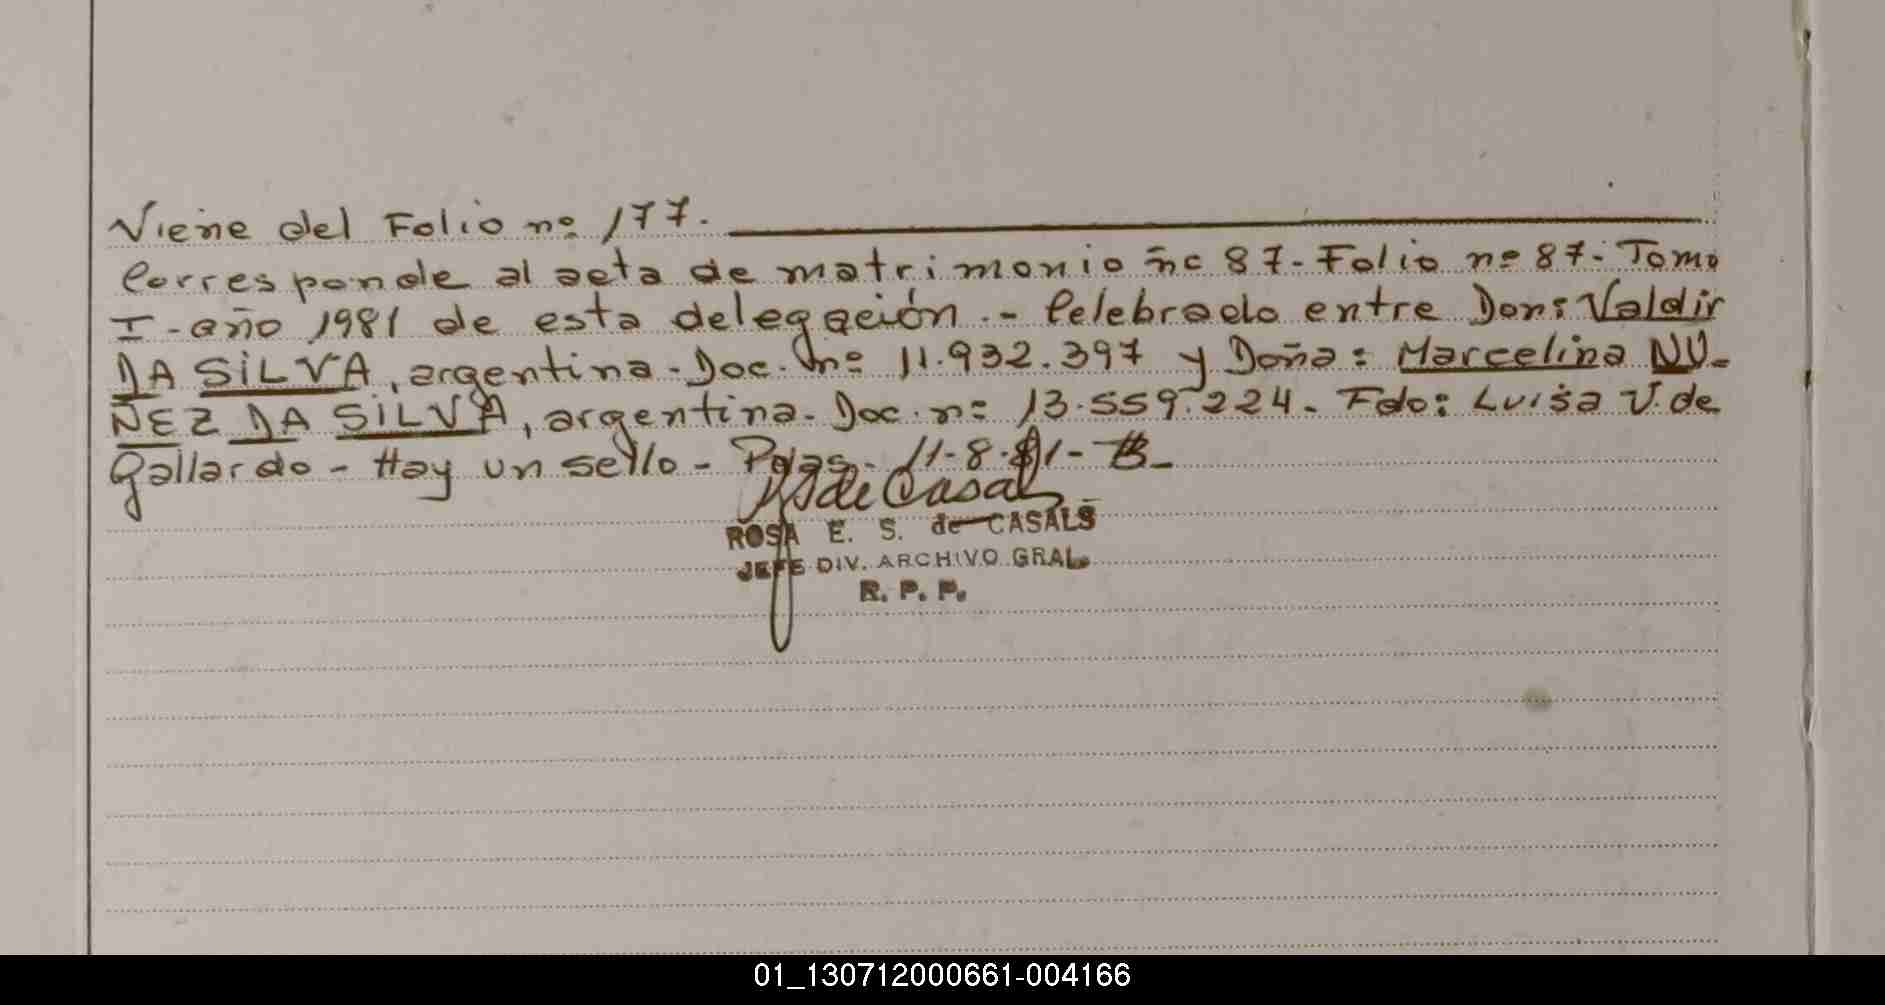 Viene del Folio nº 177.
Corresponde al acta de matrimonio nº 87. Folio nº 87. Tomo
I - año 1981 de esta delegación. - Celebrado entre Don: Valdir
DA SILVA, argentina. Doc. nº 11.932.397 y Doña: Marcelina NU-
ÑEZ DA SILVA, argentina. Doc. nº 13.559.224. Fdo: Luisa V. de
Gallardo - Hay un sello - Pdas. 11-8-81-
de Casals
ROSA E. S. de CASALS
JEFE DIV. ARCHIVO GRAL.
R. P. P.
01_130712000661-004166